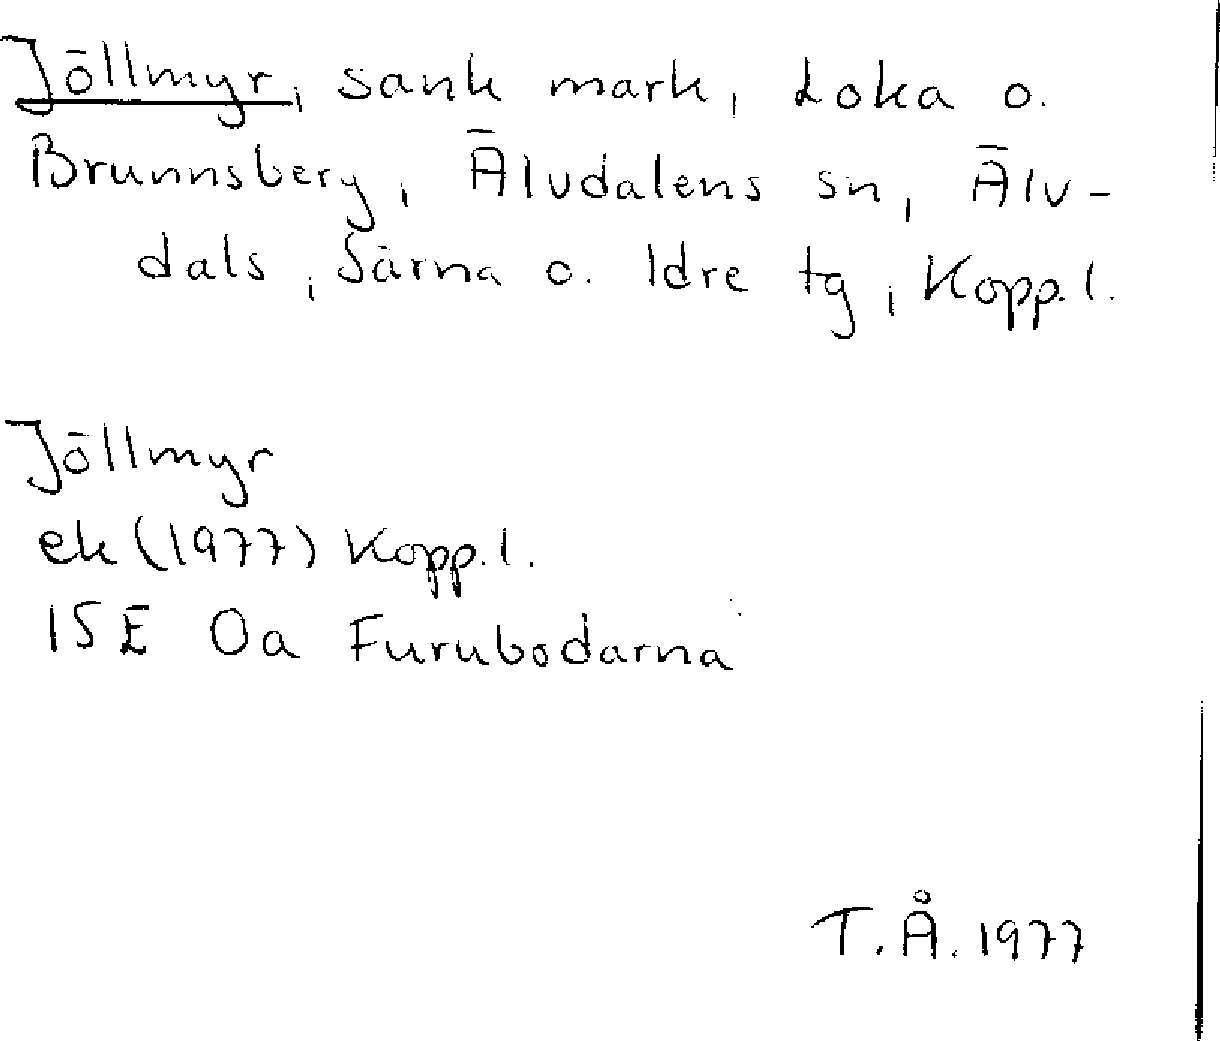 Jöllmyr, sank mark, Loka o.
Brunnsberg, Älvdalens sn, Älv-
dals, Särna o. Idre tg, Kopp.l.
Jöllmyr
ek (1977) Kopp.l.
15E 0a Furubodarna
T.Å. 1977